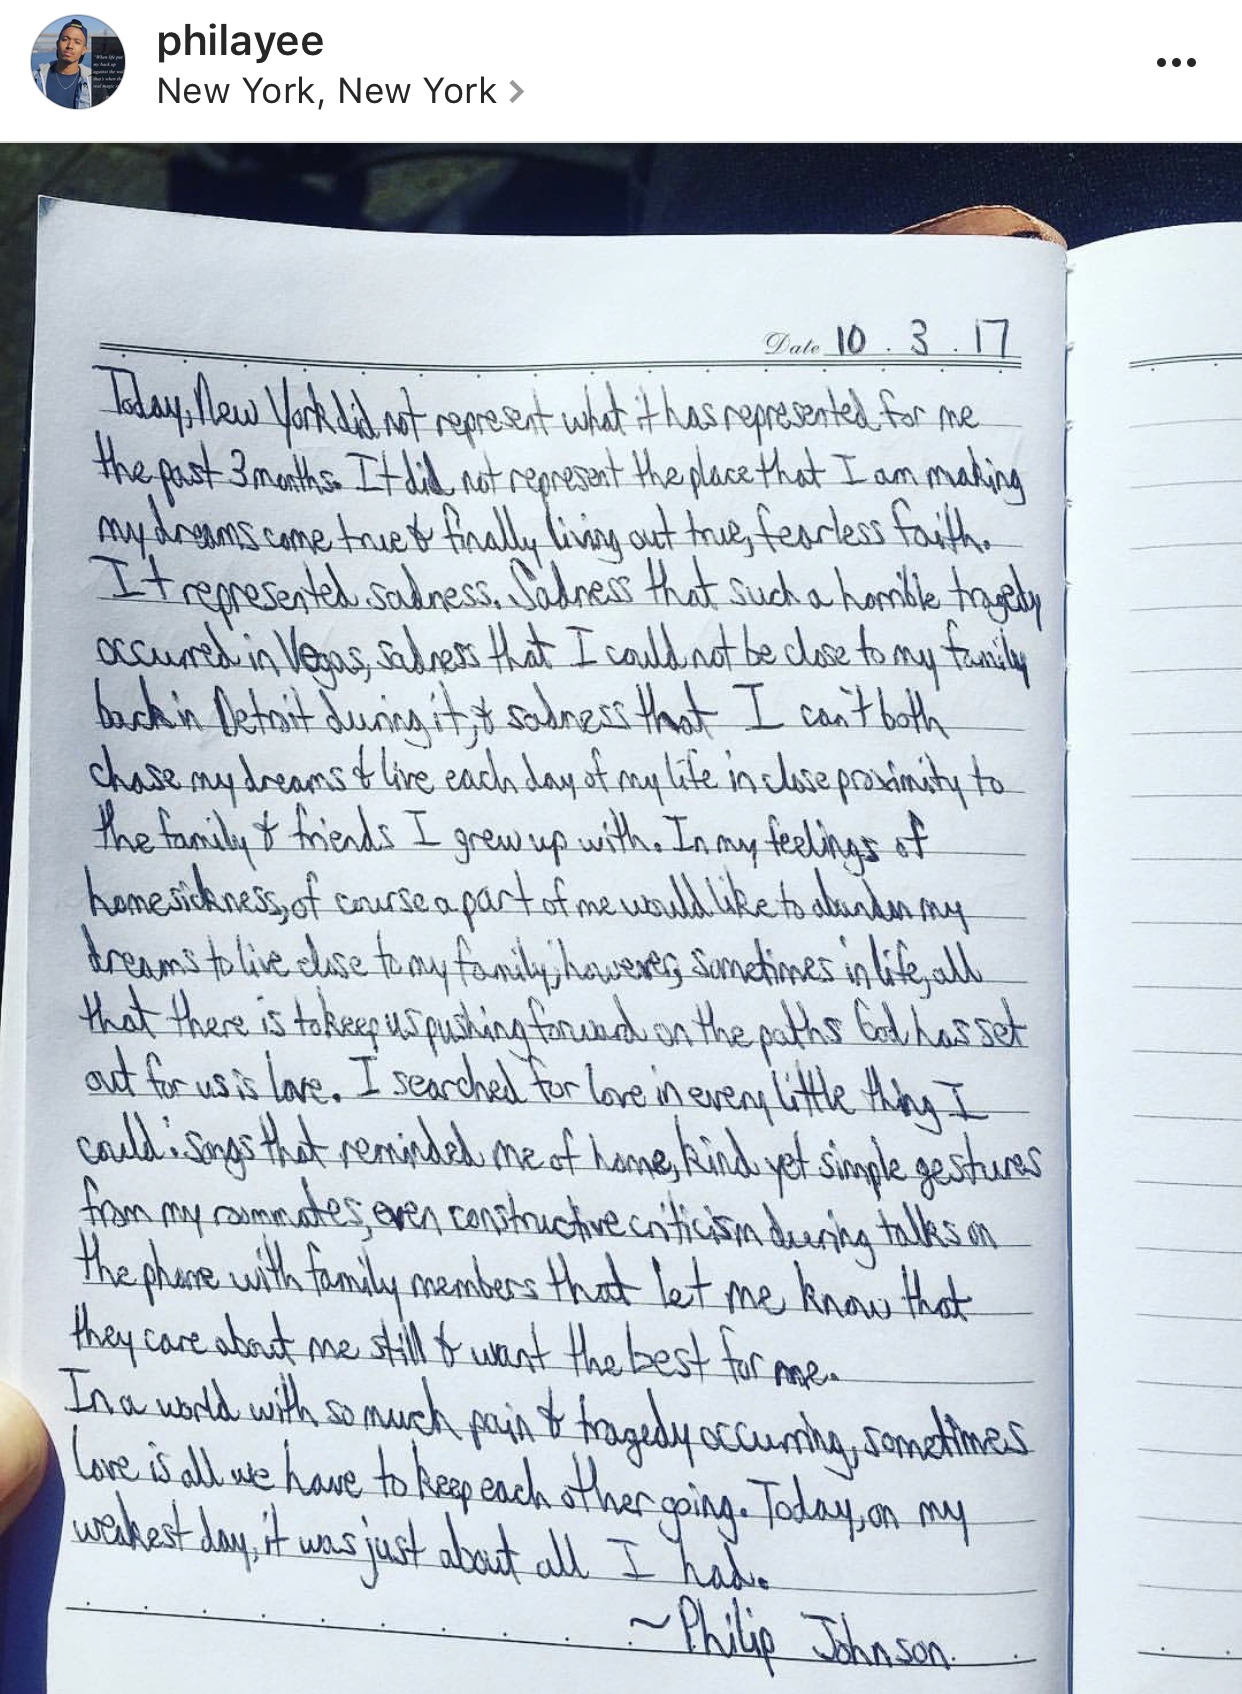 philayee
New York, New York >
"When life put
my back up
against the wall
that's when the
real magic
Date 10 . 3 . 17
Today, New York did not represent what it has represented for me
the past 3 months. It did not represent the place that I am making
my dreams come true & finally living out true, fearless faith.
It represented sadness. Sadness that such a horrible tragedy
occurred in Vegas, sadness that I could not be close to my family
back in Detroit during it, & sadness that I can't both
chase my dreams & live each day of my life in close proximity to
the family & friends I grew up with. In my feelings of
homesickness, of course a part of me would like to abandon my
dreams to live close to my family; however, sometimes in life, all
that there is to keep us pushing forward on the paths God has set
out for us is love. I searched for love in every little thing I
could: songs that reminded me of home, kind yet simple gestures
from my roommates, even constructive criticism during talks on
the phone with family members that let me know that
they care about me still & want the best for me.
In a world with so much pain & tragedy occurring, sometimes
love is all we have to keep each other going. Today, on my
weakest day, it was just about all I had.
~Philip Johnson.